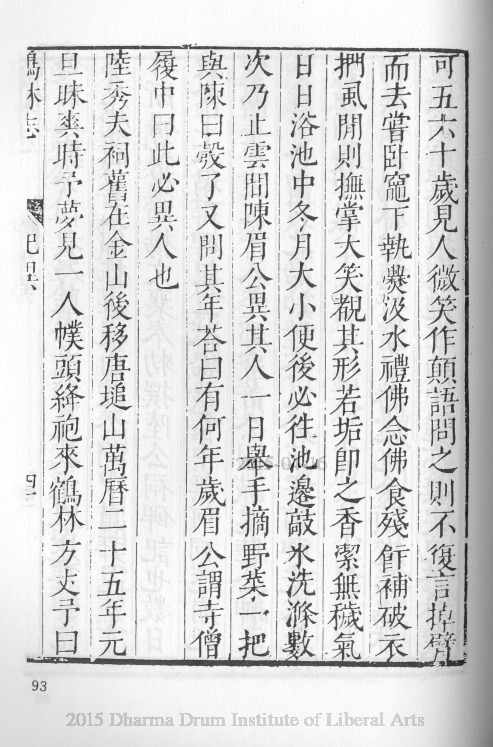 可五六十歲見人微笑作顛語問之則不復言掉臂
而去嘗臥竈下執爨汲水禮佛念佛食殘飯補破衣
捫虱閒則撫掌大笑覩其形若垢卽之香潔無穢氣
日日浴池中冬月大小便後必徃池邊敲氷洗滌數
次乃止雲間陳眉公異其人一日舉手摘野菜一把
與陳曰殺了又問其年荅曰有何年歲眉公謂寺僧
履中曰此必異人也
陸秀夫祠舊在金山後移唐塠山萬曆二十五年元
旦昧爽時予夢見一人幞頭絳袍來鶴林方丈予曰
鶴林志
紀異
四十
93
2015 Dharma Drum Institute of Liberal Arts